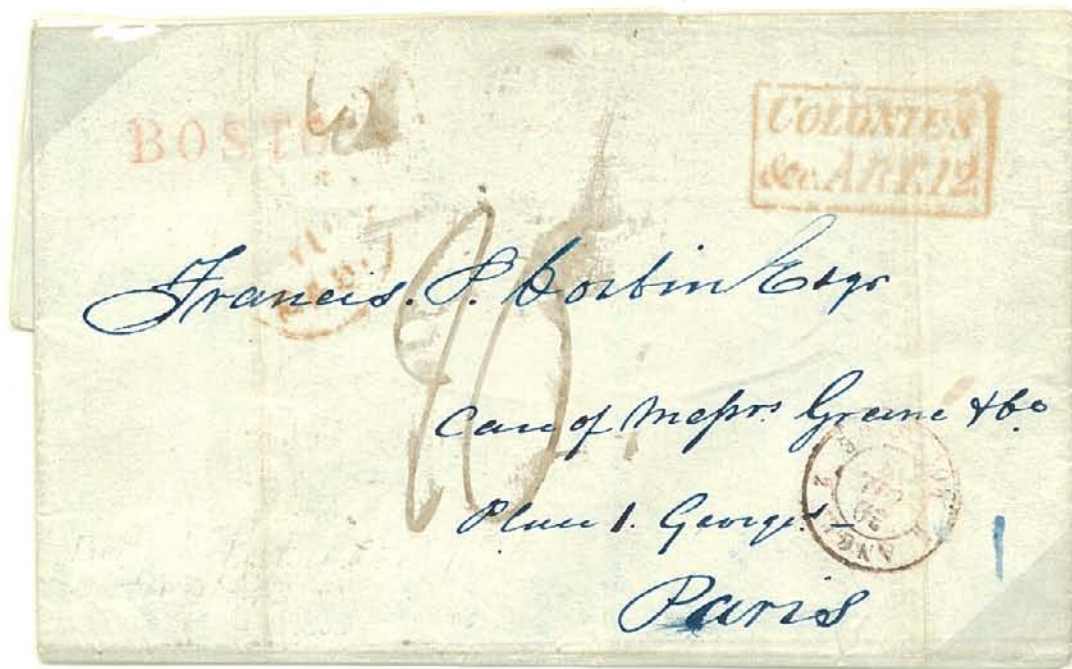 BOSTON
COLONIES
&c. ART. 12
Francis. P. Corbin Esqr
Care of Messrs. Greene & Co
Place S. Georges
Paris